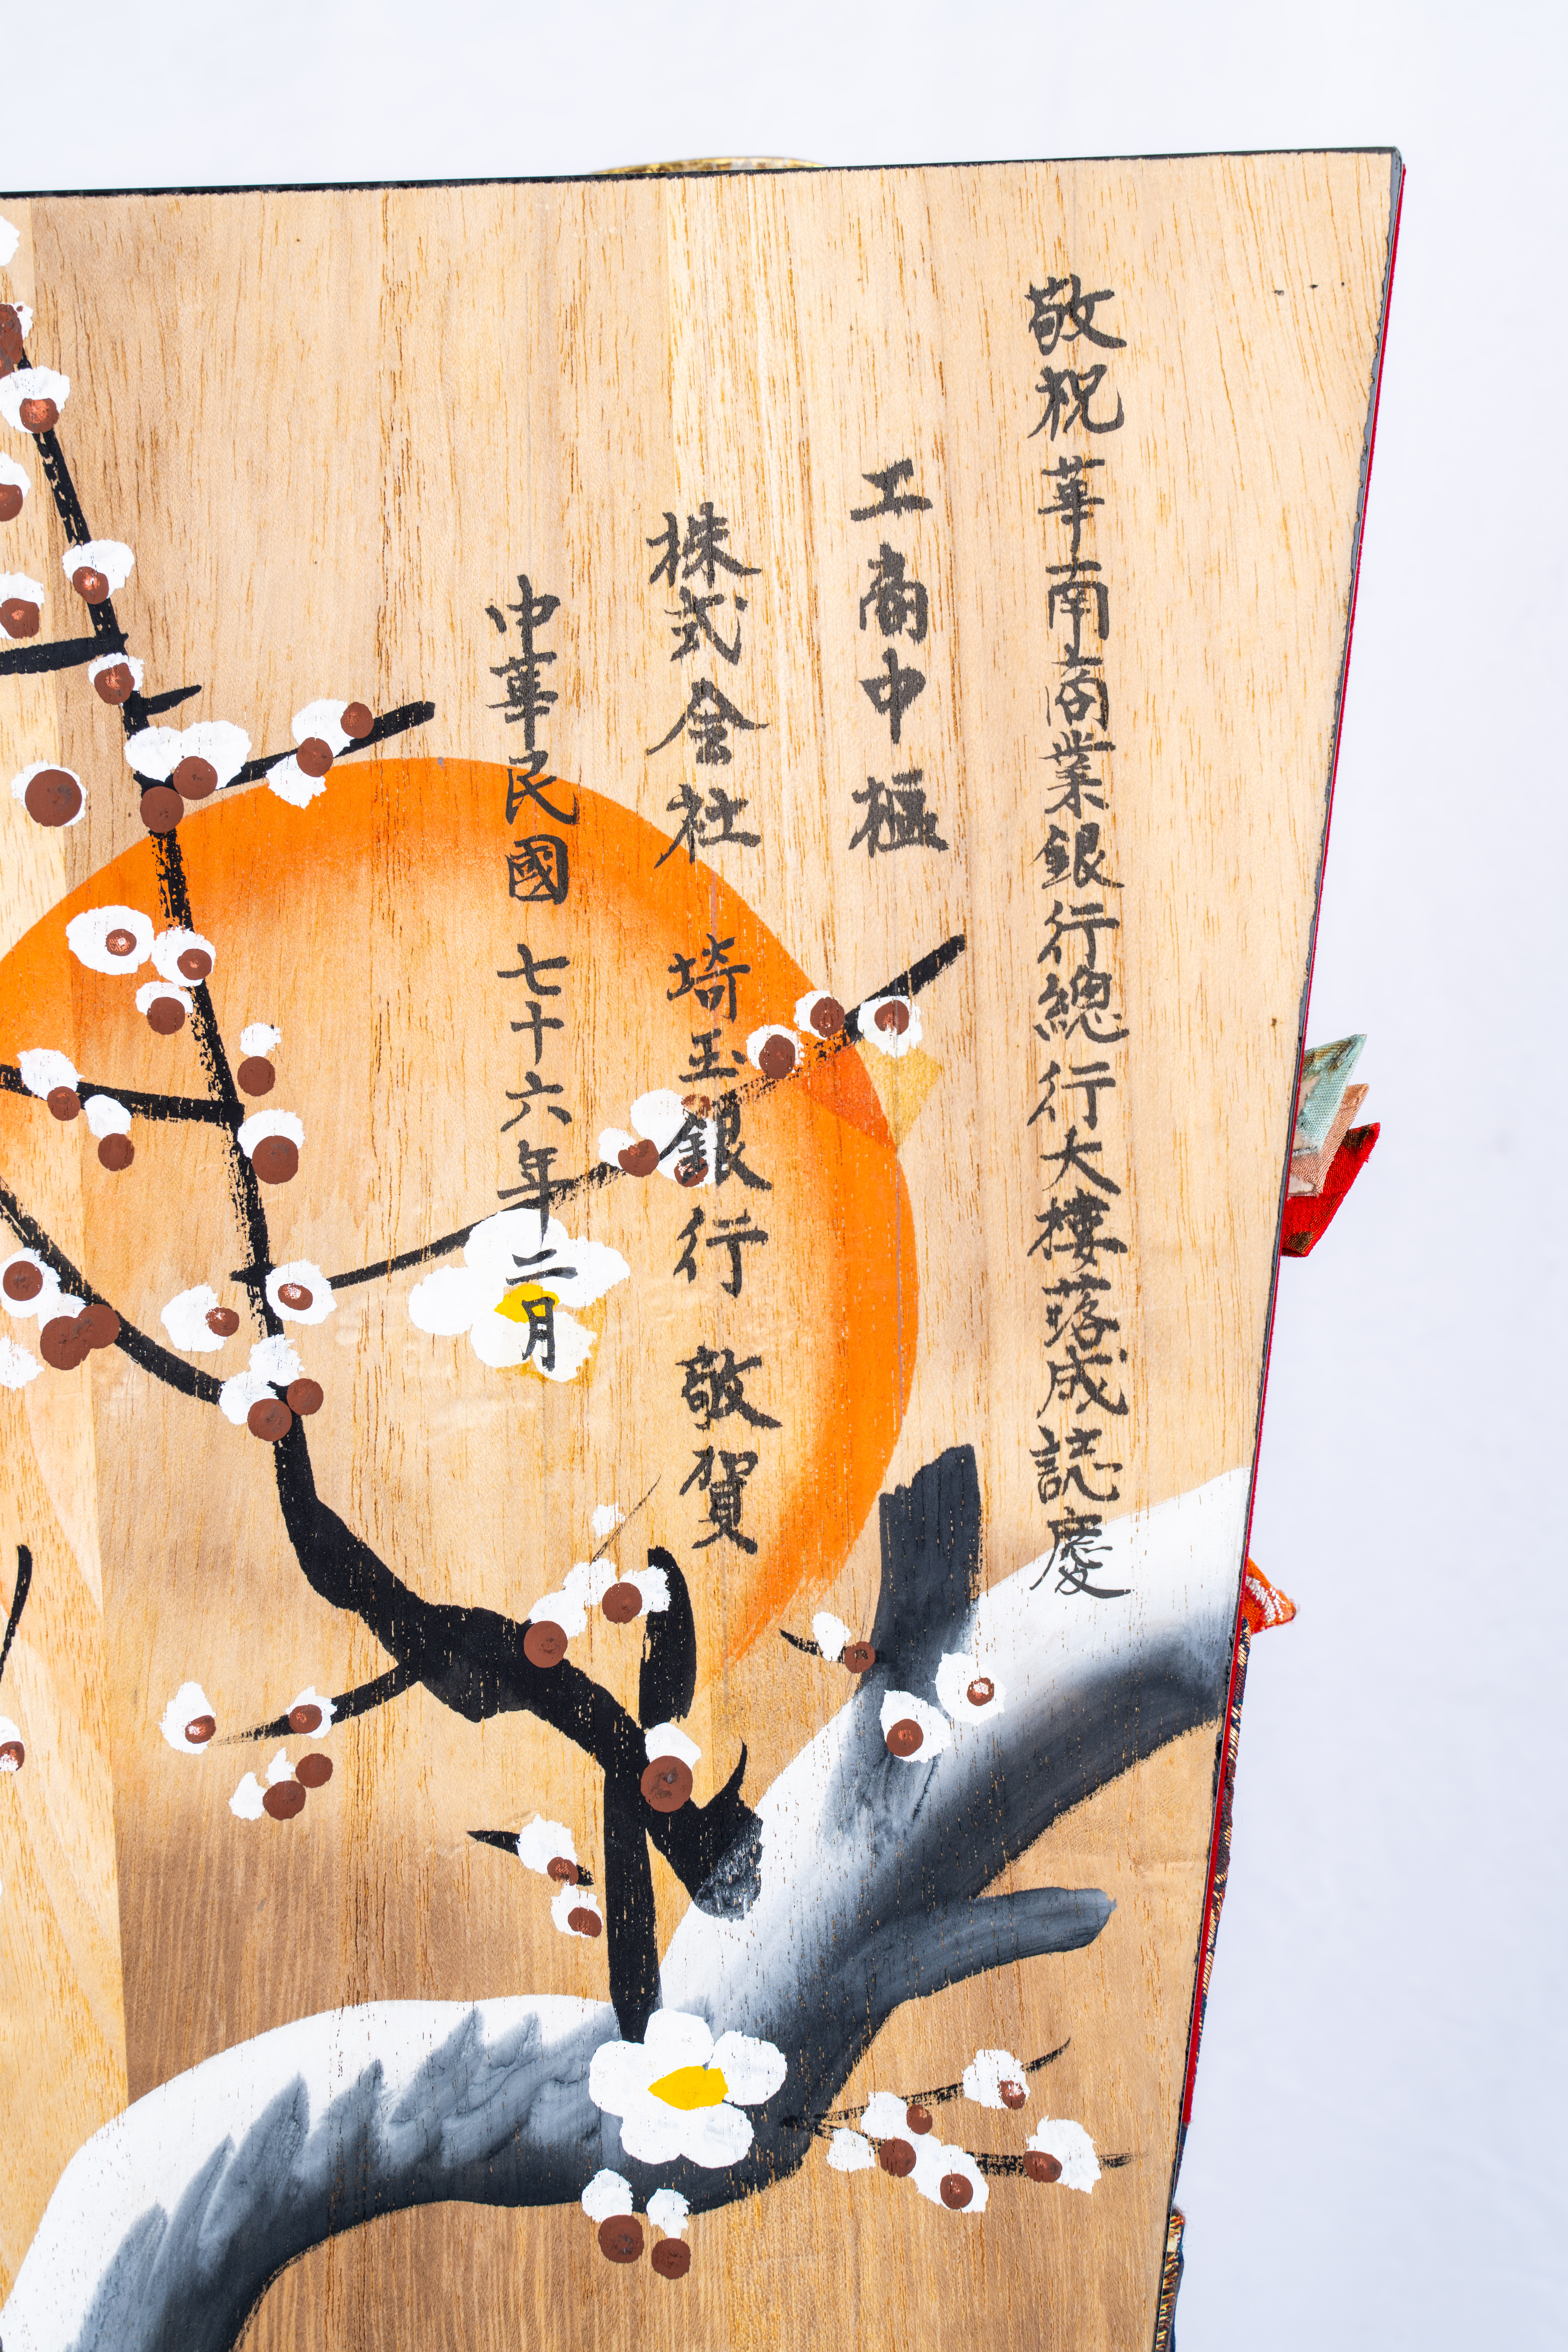 敬祝 華南商業銀行總行大樓落成誌慶
工商中樞
株式会社 埼玉銀行 敬賀
中華民國 七十六年二月